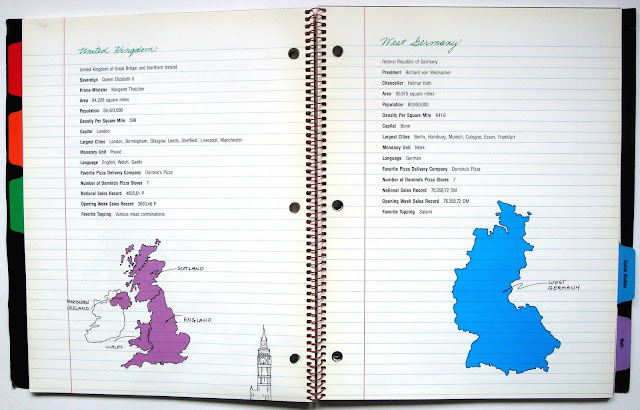 United Kingdom
United Kingdom of Great Britain and Northern Ireland
Sovereign Queen Elizabeth II
Prime Minister Margaret Thatcher
Area 94,226 square miles
Population 56,423,000
Density Per Square Mile 598
Capital London
Largest Cities London, Birmingham, Glasgow, Leeds, Sheffield, Liverpool, Manchester
Monetary Unit Pound
Language English, Welsh, Gaelic
Favorite Pizza Delivery Company Domino's Pizza
Number of Domino's Pizza Stores 7
National Sales Record 4825,61 P
Opening Week Sales Record 3603,46 P
Favorite Topping Various meat combinations
SCOTLAND
NORTHERN
IRELAND
ENGLAND
WALES
West Germany
Federal Republic of Germany
President Richard von Weizsacker
Chancellor Helmut Kohl
Area 95,975 square miles
Population 60,950,000
Density Per Square Mile 641.6
Capital Bonn
Largest Cities Berlin, Hamburg, Munich, Cologne, Essen, Frankfurt
Monetary Unit Mark
Language German
Favorite Pizza Delivery Company Domino's Pizza
Number of Domino's Pizza Stores 7
National Sales Record 76,358,72 DM
Opening Week Sales Record 76,358,72 DM
Favorite Topping Salami
WEST
GERMANY
Social Studies
Math